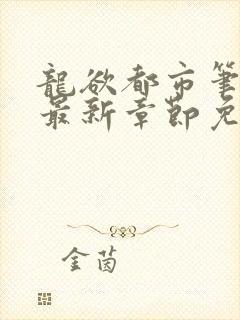 龍欲都市筆
最新章節免
金茵